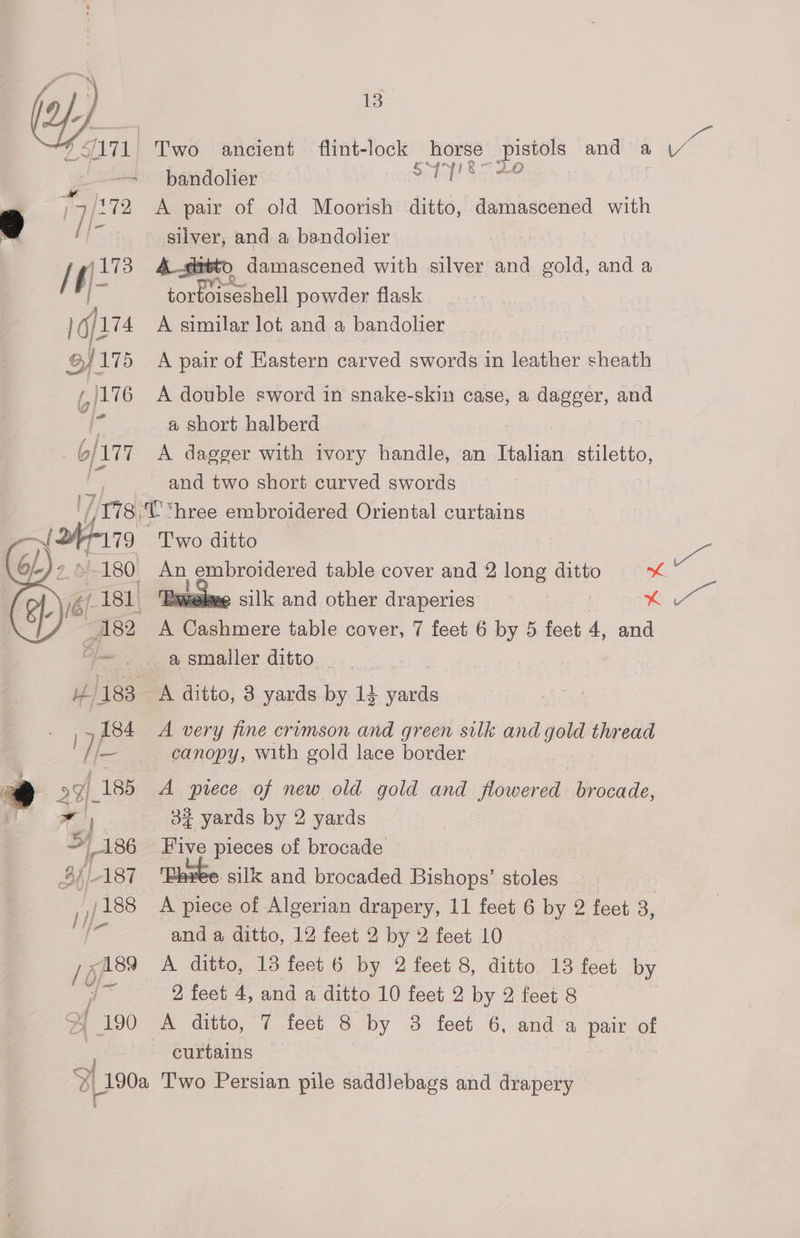 13
171 Two ancient flint-lock horse pistols and a
bandolier
172 A pair of old Moorish ditto, damascened with
silver, and a bandolier
173 A ditto damascened with silver and gold, and a
tortoiseshell powder flask
174 A similar lot and a bandolier
175 A pair of Eastern carved swords in leather sheath
176 A double sword in snake-skin case, a dagger, and
a short halberd
177 A dagger with ivory handle, an Italian stiletto,
and two short curved swords
178 Three embroidered Oriental curtains
179 Two ditto
180 An embroidered table cover and 2 long ditto
181 silk and other draperies
182 A Cashmere table cover, 7 feet 6 by 5 feet 4, and
a smaller ditto
183 A ditto, 3 yards by 1½ yards
184 A very fine crimson and green silk and gold thread
canopy, with gold lace border
185 A piece of new old gold and flowered brocade,
3¾ yards by 2 yards
186 Five pieces of brocade
187 silk and brocaded Bishops' stoles
188 A piece of Algerian drapery, 11 feet 6 by 2 feet 3,
and a ditto, 12 feet 2 by 2 feet 10
189 A ditto, 13 feet 6 by 2 feet 8, ditto 13 feet by
2 feet 4, and a ditto 10 feet 2 by 2 feet 8
190 A ditto, 7 feet 8 by 3 feet 6, and a pair of
curtains
190a Two Persian pile saddlebags and drapery